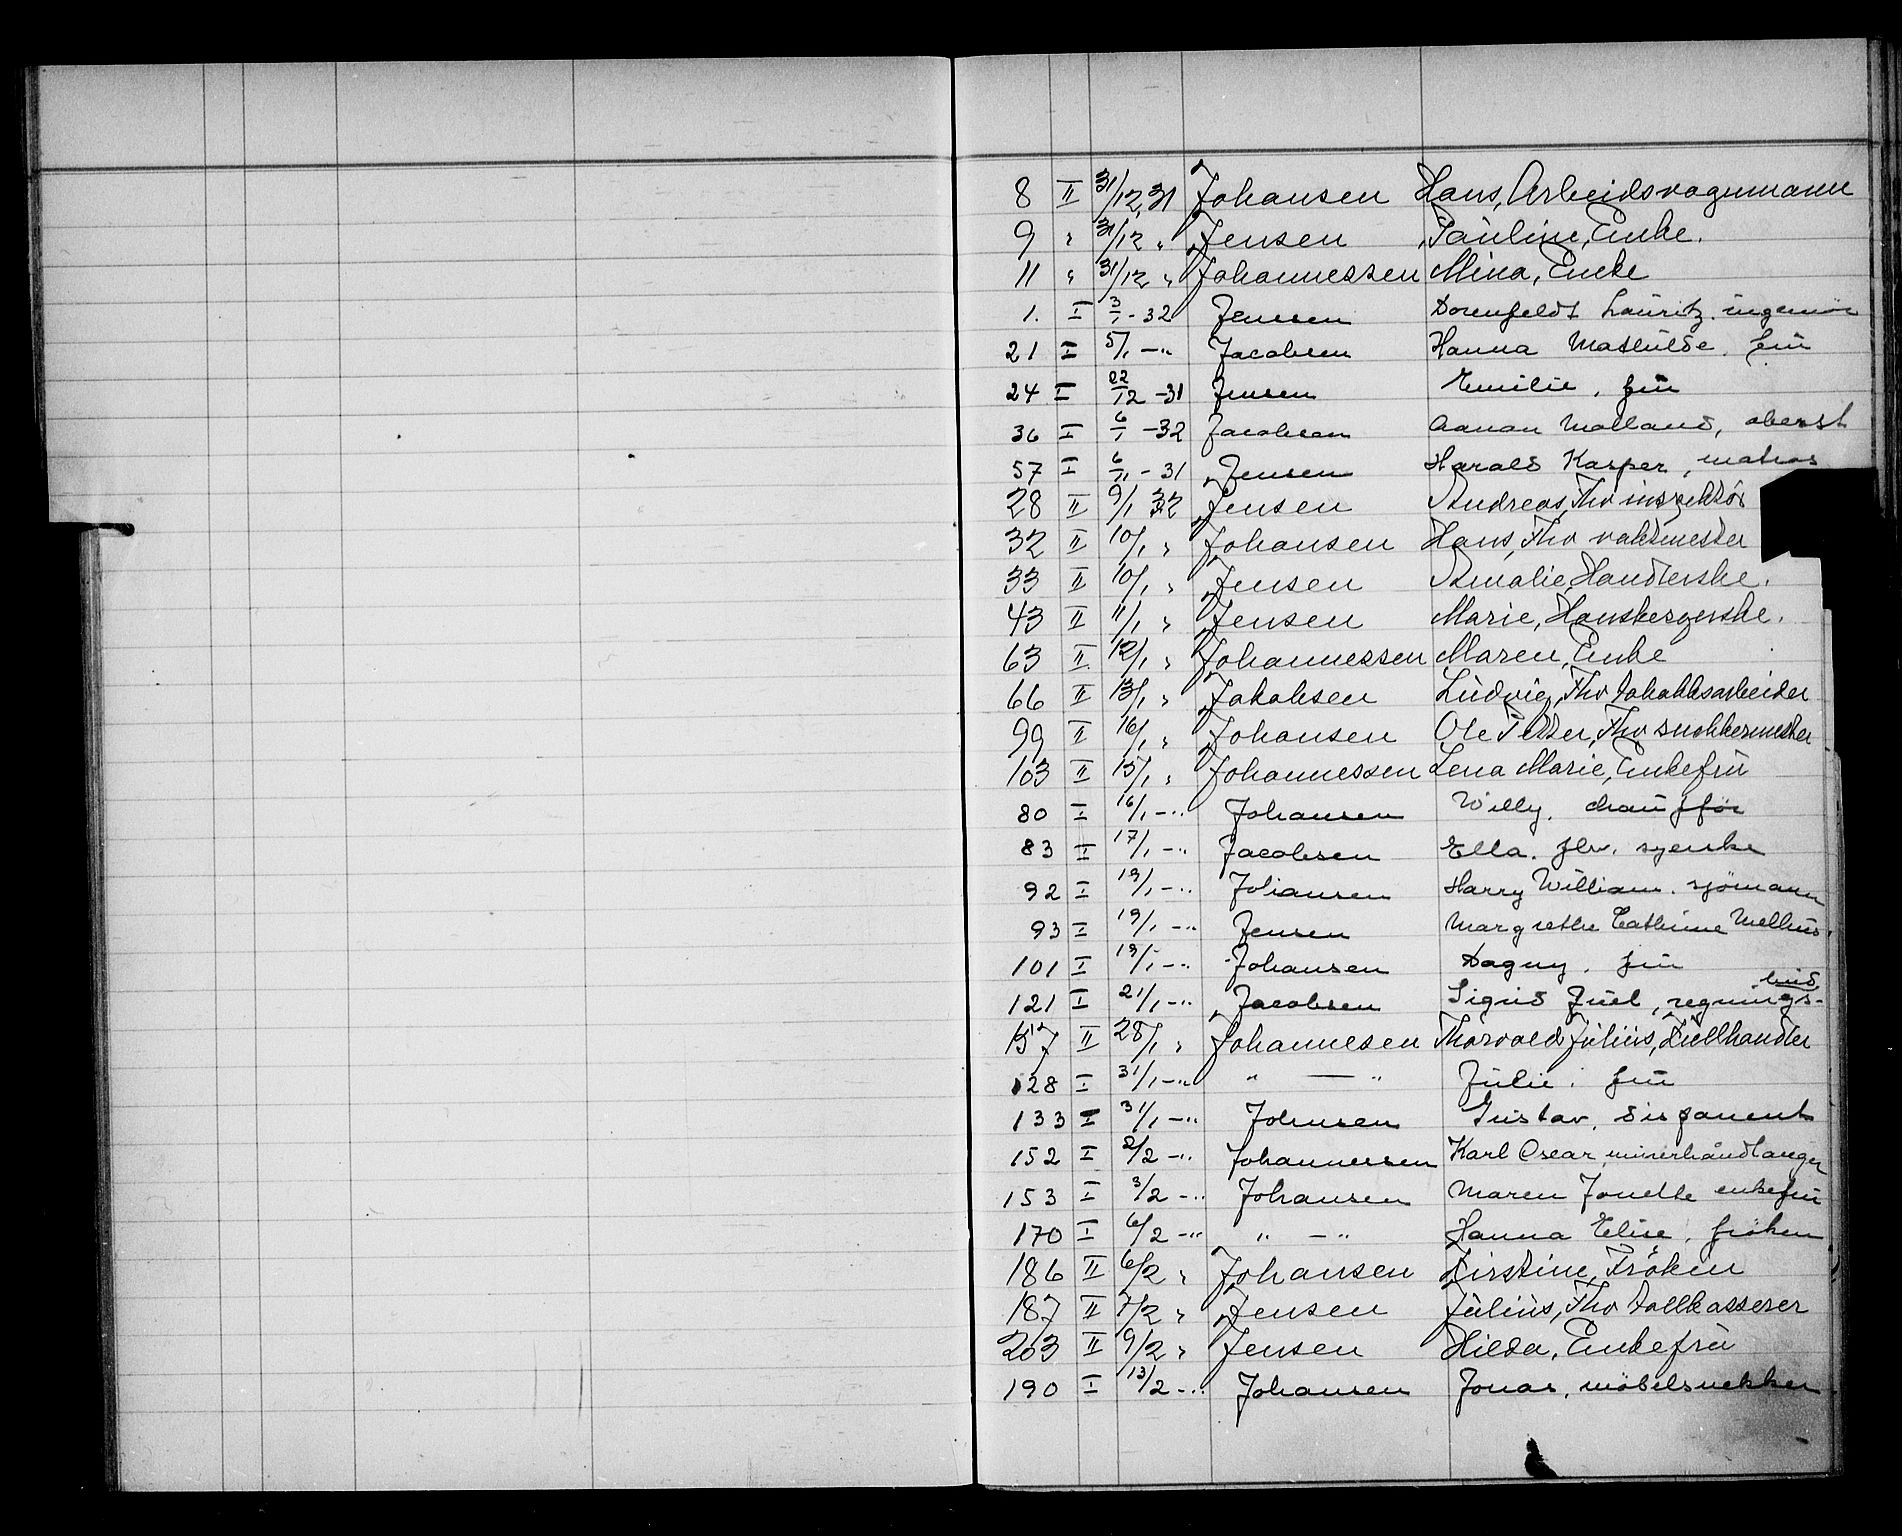 8 II 31/12 31 Johansen Hans, Arbeidsvognmann
9 " 31/12 " Jensen Pauline, Enke.
11 " 31/12 " Johannessen Mina, Enke
1. I 3/1 - 32 Jenssen Dorenfeldt Lauritz. ingeniør
21 I 5/1 - " Jacobsen Hanna Mathilde. fru
24 I 22/12 - 31 Jensen Emilie, fru
36 I 6/1 - 32 Jacobsen Aanon Molland, oberst
57 I 6/1 - 31 Jensen Harald Kasper, matros
28 II 9/1 32 Jensen Andreas, Fhv inspektör
32 II 10/1 " Johansen Hans, Fhv vaktmester
33 II 10/1 " Jensen Amalie, Handlerske.
43 II 11/1 " Jensen Marie, Hanskesyerske.
63 II 12/1 " Johannessen Maren, Enke
66 II 13/1 " Jakobsen Ludvig, Fhv tobakksarbeider
99 II 16/1 " Johansen Ole Petter, Fhv snekkermester
103 II 15/1 " Johannessen Lena Marie, Enkefru
80 I 16/1 - " Johansen Willy, chauffør
83 I 17/1 - " Jacobsen Ella. fhv. syerske
92 I 19/1 - " Johansen Harry William. sjömann
93 I 19/1 - " Jensen Margrethe Cathrine Mellius.
101 I 19/1 - " Johansen Dagny, fru
121 I 21/1 - " Jacobsen Sigrid Juel, regnings-bud
157 II 28/1 " Johannesen Thorvald Julius, Kullhandler
128 I 31/1 - " " — " Julie, fru
133 I 31/1 - " Johnsen Gustav, disponent
152 I 2/2 - " Johannessen Karl Oscar, murerhåndlanger
153 I 3/2 - " Johansen Maren Jonette enkefru
170 I 6/2 - " " - " Hanna Elise, frøken
186 II 6/2 " Johansen Kirstine, Fröken
187 II 7/2 " Jensen Julius, Fhv tollkasserer
203 II 9/2 " Jensen Hilda, Enkefru
190 I 13/2 - " Johansen Jonas, möbelsnekker